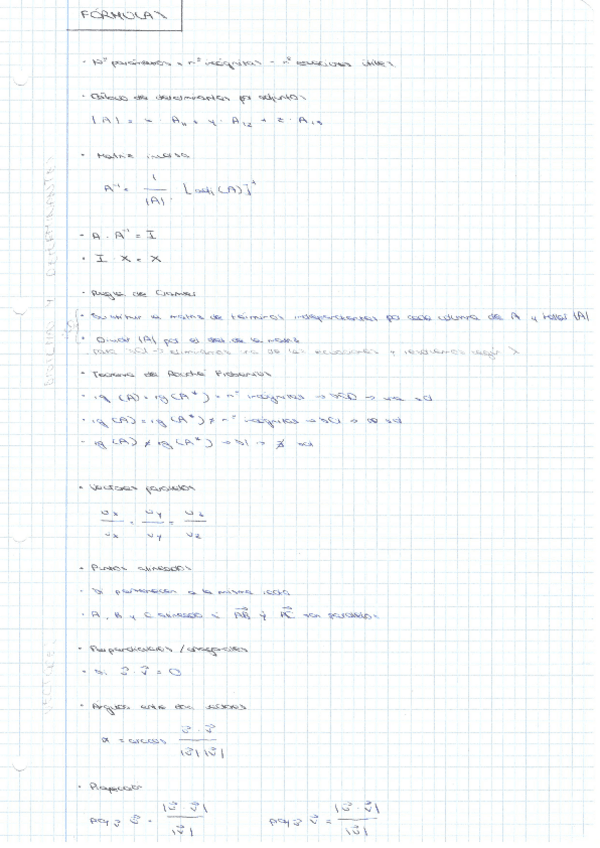 FÓRMULAS
· Nº parámetros = nº incógnitas - nº ecuaciones útiles
· Cálculo de determinantes por adjuntos
|A| = x · A₁₁ + y · A₁₂ + z · A₁₃
· Matriz inversa
A⁻¹ = 1/|A| · [adj(A)]ᵗ
· A · A⁻¹ = I
· I · X = X
· Regla de Cramer
· Sustituir la matriz de términos independientes por cada columna de A y hallar |A|
· Dividir |A| por el det de la matriz
para SCI → eliminamos una de las ecuaciones y
· Teorema de Rouché Frobenius
- rg (A) = rg (A*) = nº incógnitas → SCD → una sol
- rg (A) = rg (A*) ≠ nº incógnitas → SCI → ∞ sol
- rg (A) ≠ rg (A*) → SI → ∄ sol
· Vectores paralelos
uₓ/vₓ = u_y/v_y = u_z/v_z
· Puntos alineados
- Si pertenecen a la misma recta
- A, B y C alineados si AB y AC son paralelos
· Perpendiculares / ortogonales
- Si u · v = 0
· Ángulos entre dos vectores
α = arccos u · v / |u| |v|
· Proyección
|u · v| / |u| |u · v| / |v|